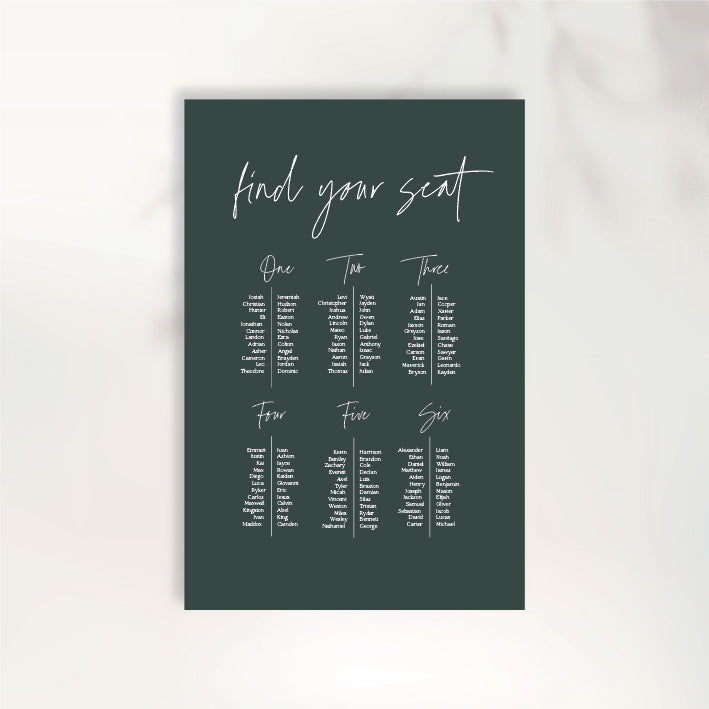 find your seat
One
Josiah
Christian
Hunter
Eli
Jonathan
Connor
Landon
Adrian
Asher
Cameron
Leo
Theodore
Jeremiah
Hudson
Robert
Easton
Nolan
Nicholas
Ezra
Colton
Angel
Brayden
Jordan
Dominic
Two
Levi
Christopher
Joshua
Andrew
Lincoln
Mateo
Ryan
Jaxon
Nathan
Aaron
Isaiah
Thomas
Wyatt
Jayden
John
Owen
Dylan
Luke
Gabriel
Anthony
Isaac
Grayson
Jack
Julian
Three
Austin
Ian
Adam
Elias
Jaxson
Greyson
Jose
Ezekiel
Carson
Evan
Maverick
Bryson
Jace
Cooper
Xavier
Parker
Roman
Jason
Santiago
Chase
Sawyer
Gavin
Leonardo
Kayden
Four
Emmett
Justin
Kai
Max
Diego
Luca
Ryker
Carlos
Maxwell
Kingston
Ivan
Maddox
Juan
Ashton
Jayce
Rowan
Kaiden
Giovanni
Eric
Jesus
Calvin
Abel
King
Camden
Five
Kevin
Bentley
Zachary
Everett
Axel
Tyler
Micah
Vincent
Weston
Miles
Wesley
Nathaniel
Harrison
Brandon
Cole
Declan
Luis
Braxton
Damian
Silas
Tristan
Ryder
Bennett
George
Six
Alexander
Ethan
Daniel
Matthew
Aiden
Henry
Joseph
Jackson
Samuel
Sebastian
David
Carter
Liam
Noah
William
James
Logan
Benjamin
Mason
Elijah
Oliver
Jacob
Lucas
Michael